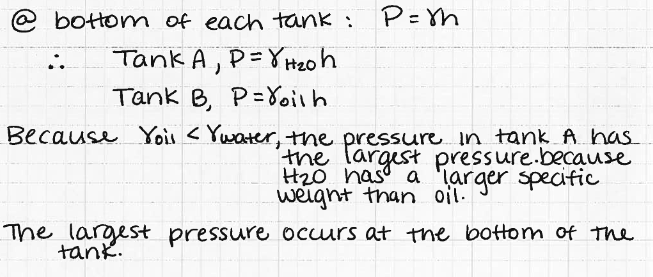 @ bottom of each tank : P = γh
∴ Tank A, P = γH₂O h
Tank B, P = γoil h
Because γoil < γwater, the pressure in tank A has
the largest pressure because
H₂O has a larger specific
weight than oil.
The largest pressure occurs at the bottom of the
tank.